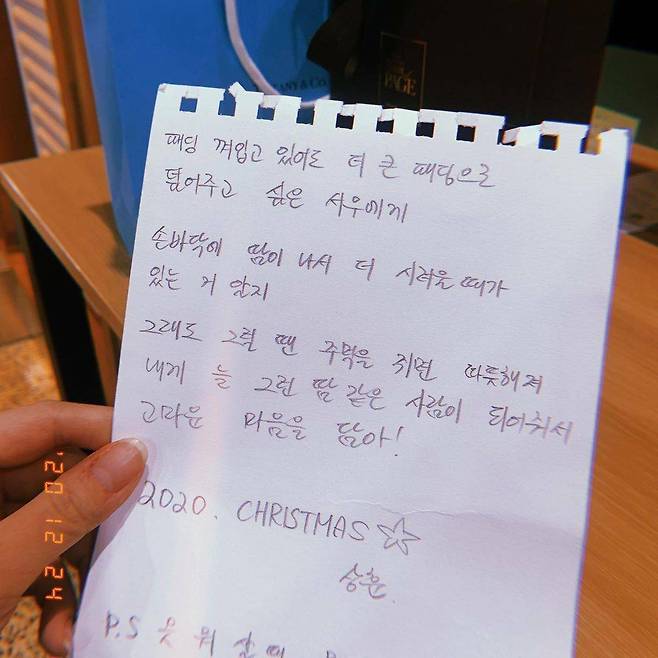 NY & Co.
PAGE
패딩 껴입고 있어도 더 큰 패딩으로
덮어주고 싶은 사우에게
손바닥에 땀이 나서 더 시려울 때가
있는 거 알지
그래도 그럴 땐 주먹을 쥐면 따뜻해져
내게 늘 그런 땀 같은 사람이 되어줘서
고마운 마음을 담아!
2020. CHRISTMAS ☆
상훈.
P.S 옷
'20 12 24